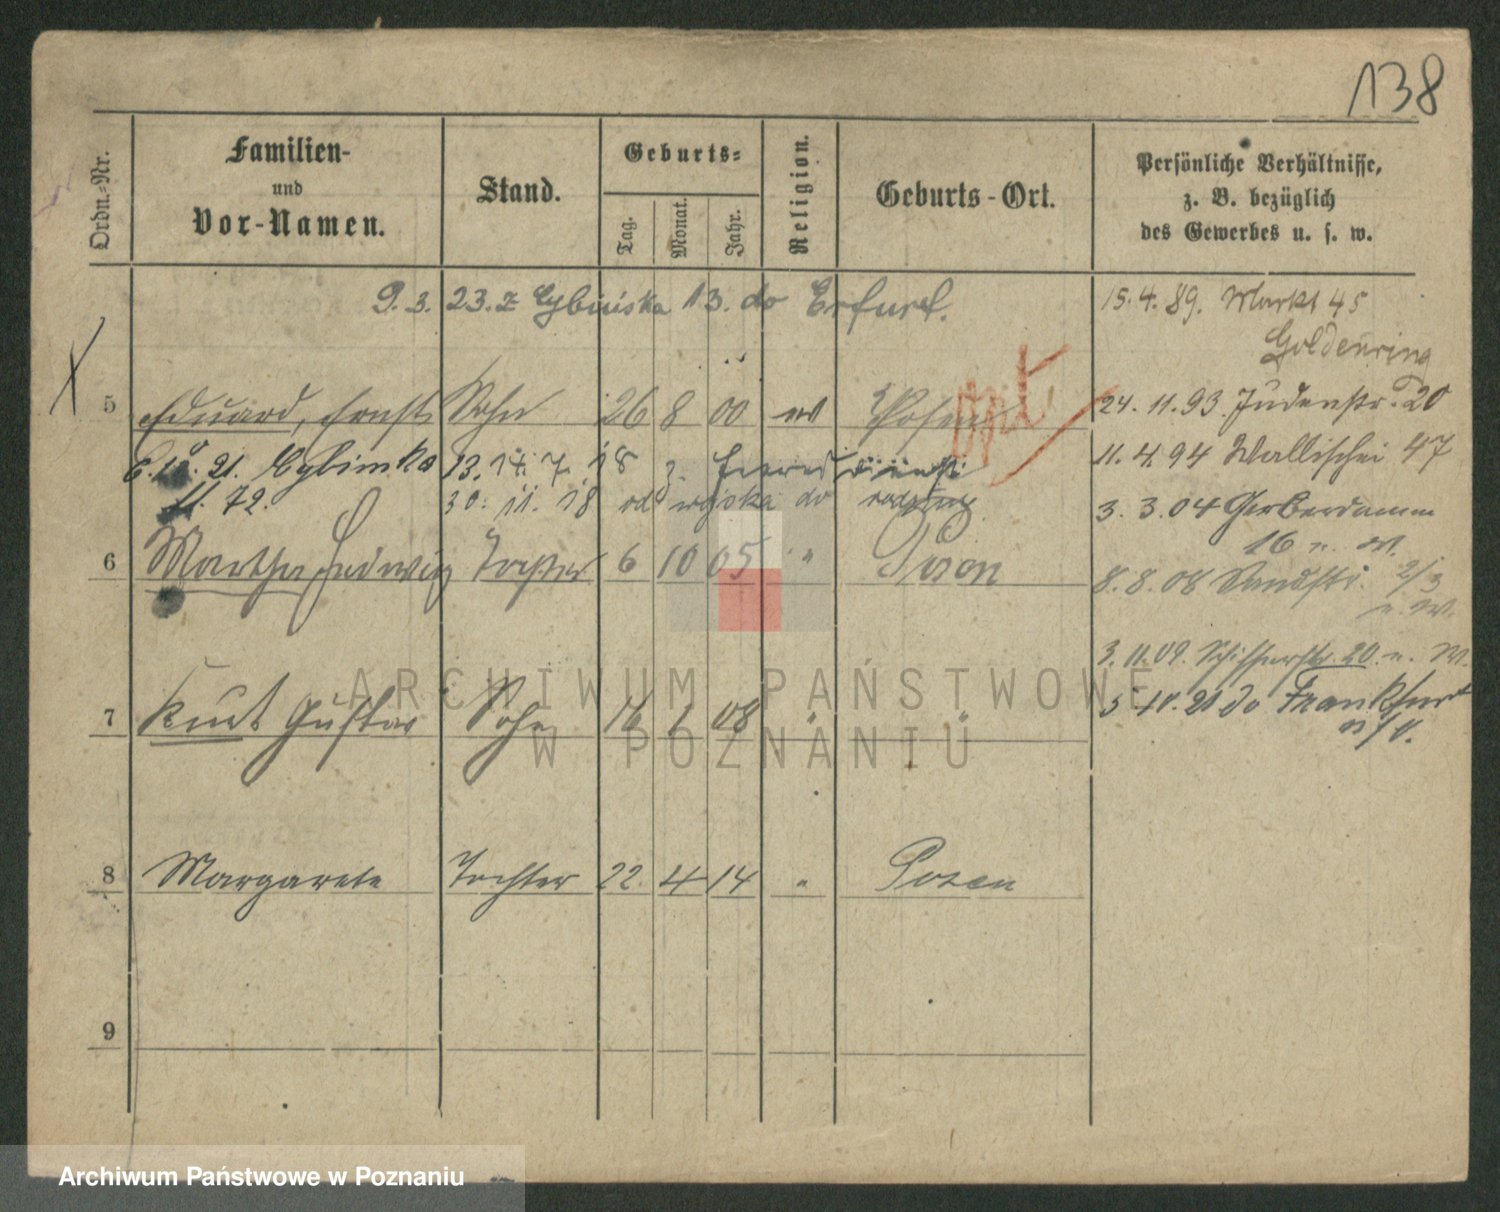 138
Ordn.-Nr.
Familien-
und
Vor-Namen.
Stand.
Geburts-
Tag.
Monat.
Jahr.
Religion.
Geburts-Ort.
Persönliche Verhältnisse,
z. B. bezüglich
des Gewerbes u. s. w.
9. 3. 23. z Cybińska 13. do Erfurt.
15. 4. 89. Markt 45
Goldenring
5 Eduard, Ernst Sohn 26 8 00 ev Posen
opt
24. 11. 93. Judenstr. 20
21. Cybinska 13. 17. 7. 18
11. 4. 94 Wallischei 47
72. 30. 11. 18 od wojska do rodziny
3. 3. 04 Gerberdamm
16 u. W.
6 Martha Hedwig Tochter 6 10 05 " Posen
8. 8. 08 Sandstr. 2/3
u. W.
3. 11. 09. Schifferstr. 20. u. W.
7 Kurt Gustav Sohn 16 1 08 "
5. 11. 21 do Frankfurt
n/O.
8 Margarete Tochter 22. 4 14 " Posen
9
ARCHIWUM PAŃSTWOWE
W POZNANIU
Archiwum Państwowe w Poznaniu